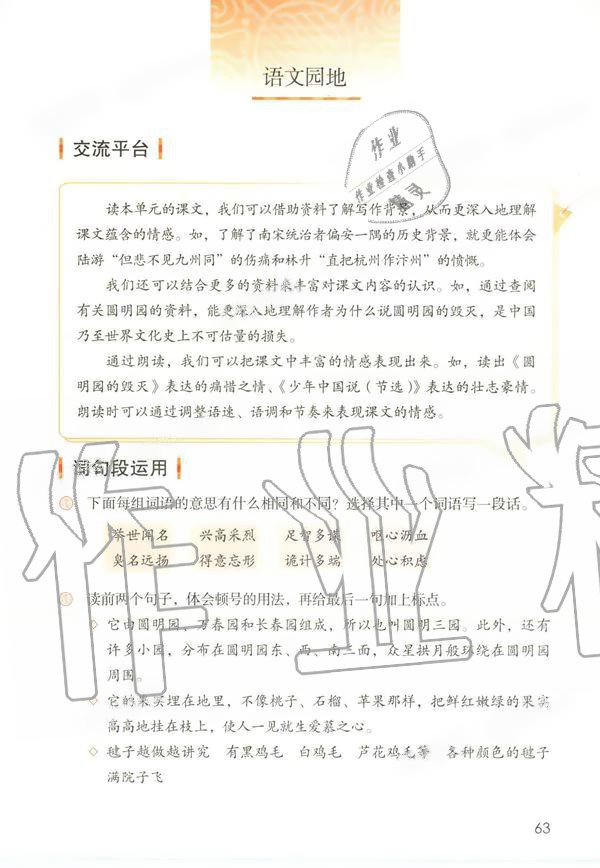 语文园地
交流平台
读本单元的课文，我们可以借助资料了解写作背景，从而更深入地理解
课文蕴含的情感。如，了解了南宋统治者偏安一隅的历史背景，就更能体会
陆游“但悲不见九州同”的伤痛和林升“直把杭州作汴州”的愤慨。
我们还可以结合更多的资料来丰富对课文内容的认识。如，通过查阅
有关圆明园的资料，能更深入地理解作者为什么说圆明园的毁灭，是中国
乃至世界文化史上不可估量的损失。
通过朗读，我们可以把课文中丰富的情感表现出来。如，读出《圆
明园的毁灭》表达的痛惜之情、《少年中国说（节选）》表达的壮志豪情。
朗读时可以通过调整语速、语调和节奏来表现课文的情感。
作业
作业检查小助手
词句段运用
下面每组词语的意思有什么相同和不同？选择其中一个词语写一段话。
举世闻名 兴高采烈 足智多谋 呕心沥血
臭名远扬 得意忘形 诡计多端 处心积虑
读前两个句子，体会顿号的用法，再给最后一句加上标点。
◇ 它由圆明园、万春园和长春园组成，所以也叫圆明三园。此外，还有
许多小园，分布在圆明园东、西、南三面，众星拱月般环绕在圆明园
周围。
◇ 它的果实埋在地里，不像桃子、石榴、苹果那样，把鲜红嫩绿的果实
高高地挂在枝上，使人一见就生爱慕之心。
◇ 毽子越做越讲究 有黑鸡毛 白鸡毛 芦花鸡毛等 各种颜色的毽子
满院子飞
作业
63